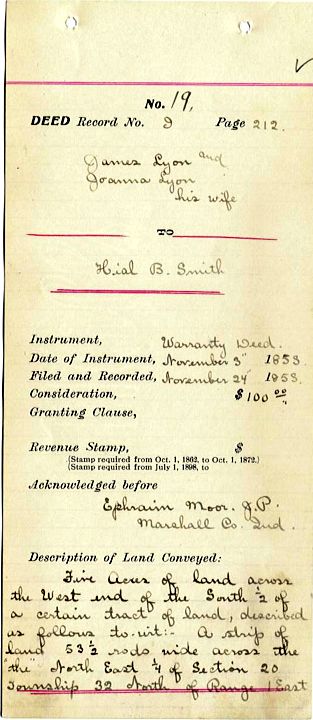 No. 19.
DEED Record No. D Page 212.
James Lyon and
Joanna Lyon
his wife
TO
Hial B. Smith
Instrument, Warranty Deed.
Date of Instrument, November 3" 1853.
Filed and Recorded, November 24" 1853.
Consideration, $100 00/..
Granting Clause,
Revenue Stamp, $
(Stamp required from Oct. 1, 1862, to Oct. 1, 1872.)
(Stamp required from July 1, 1898, to
Acknowledged before
Ephraim Moor. J.P.
Marshall Co. Ind.
Description of Land Conveyed:
Five Acres of land across
the West end of the South ½ of
a certain tract of land, described
as follows to-wit:- A strip of
land 53½ rods wide across the
"the" North East ¼ of Section 20
Township 32 North of Range 1 East